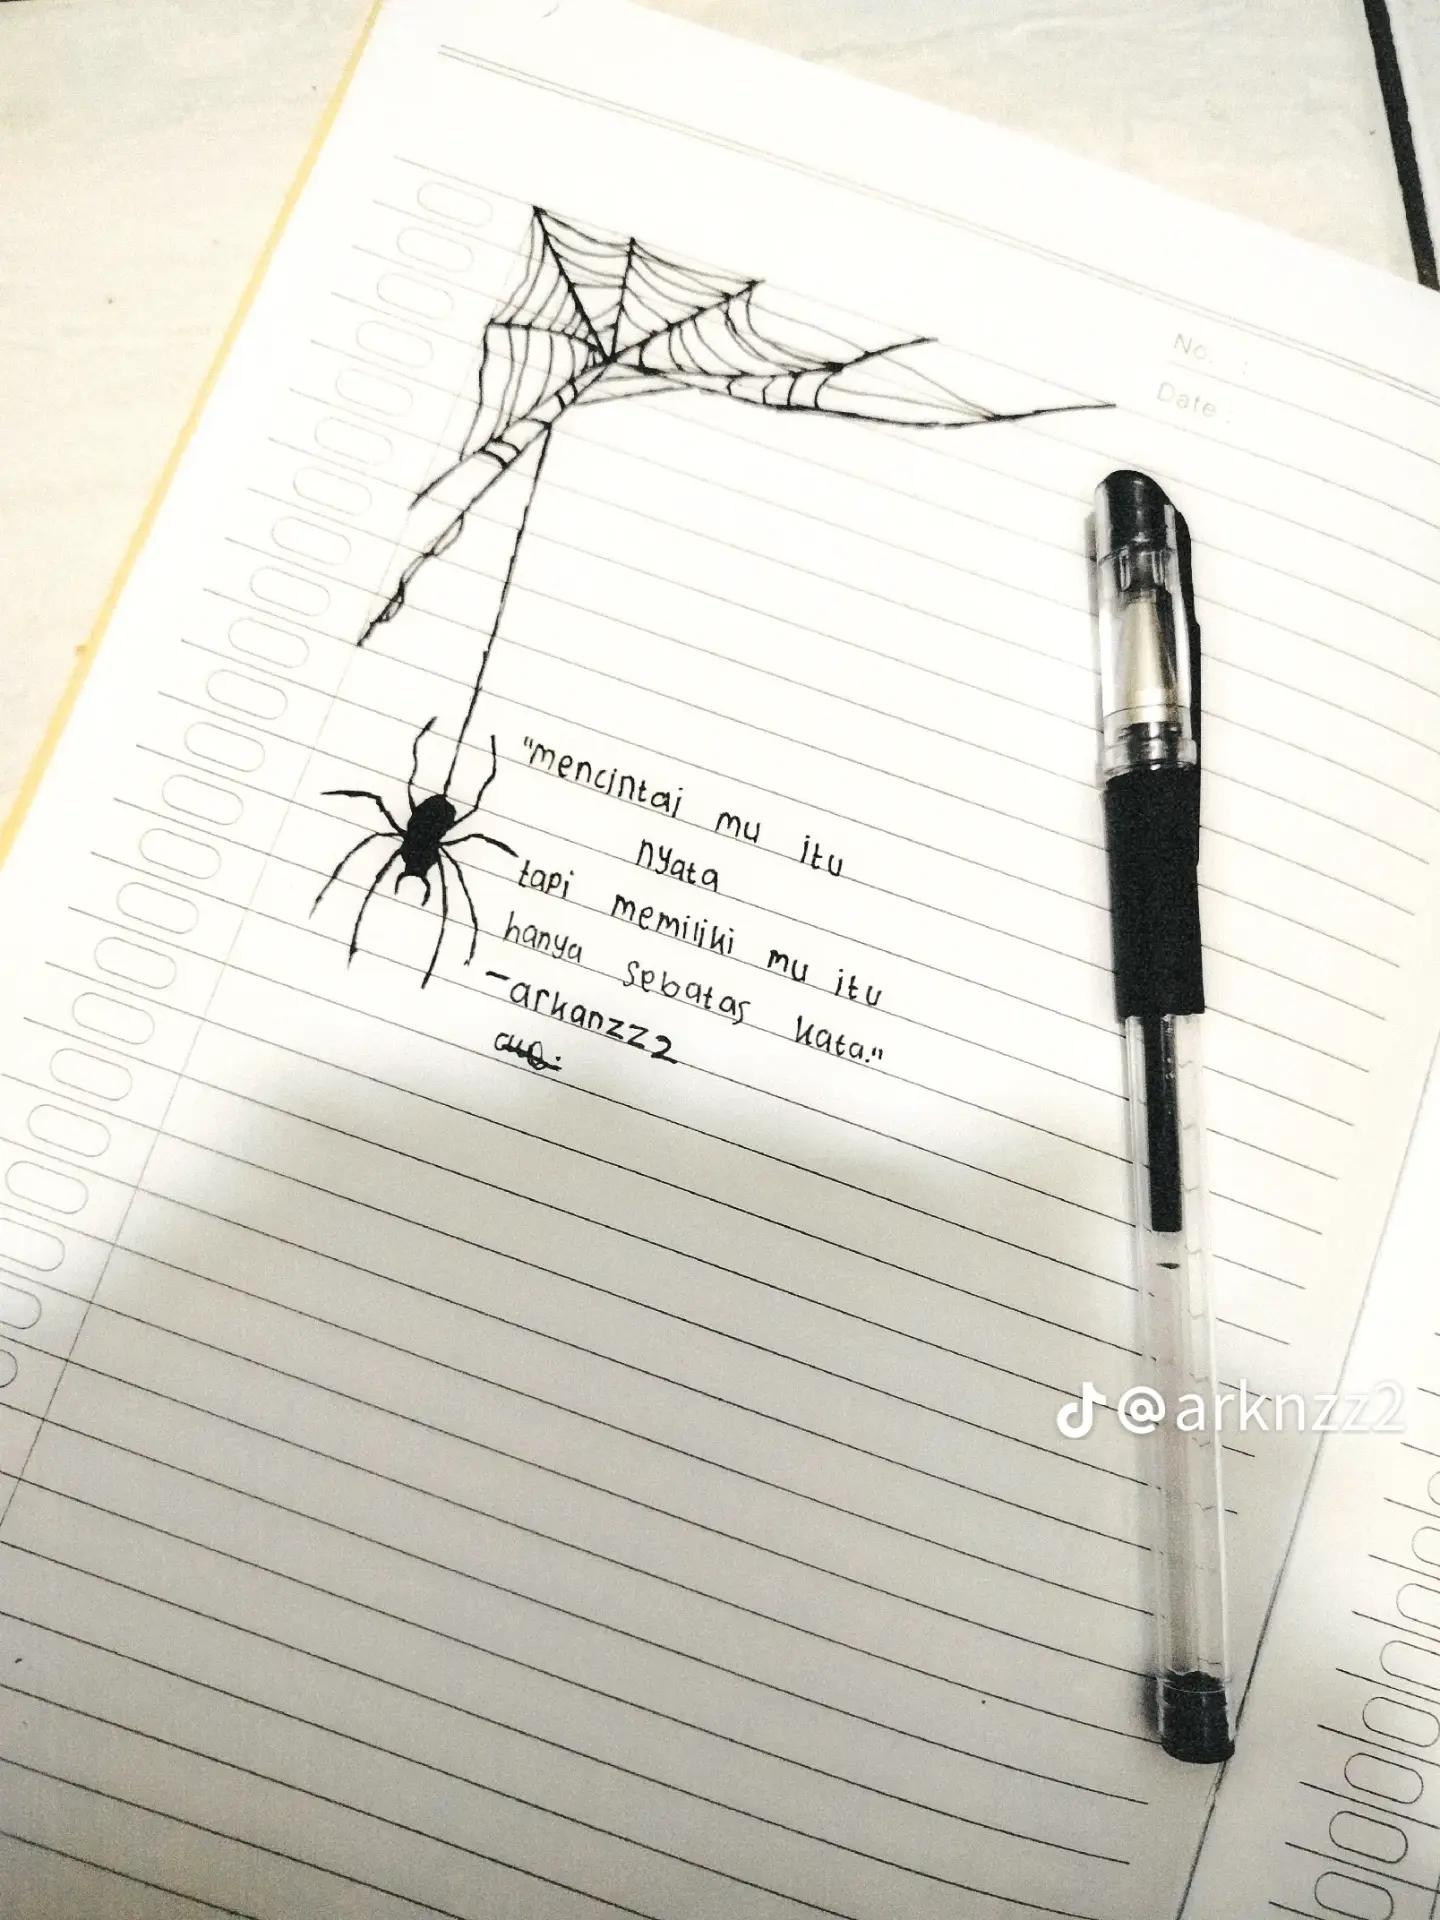 No. :
Date :
"mencintai mu itu
nyata
tapi memiliki mu itu
hanya sebatas kata."
-arkanzz2
@arknzz2